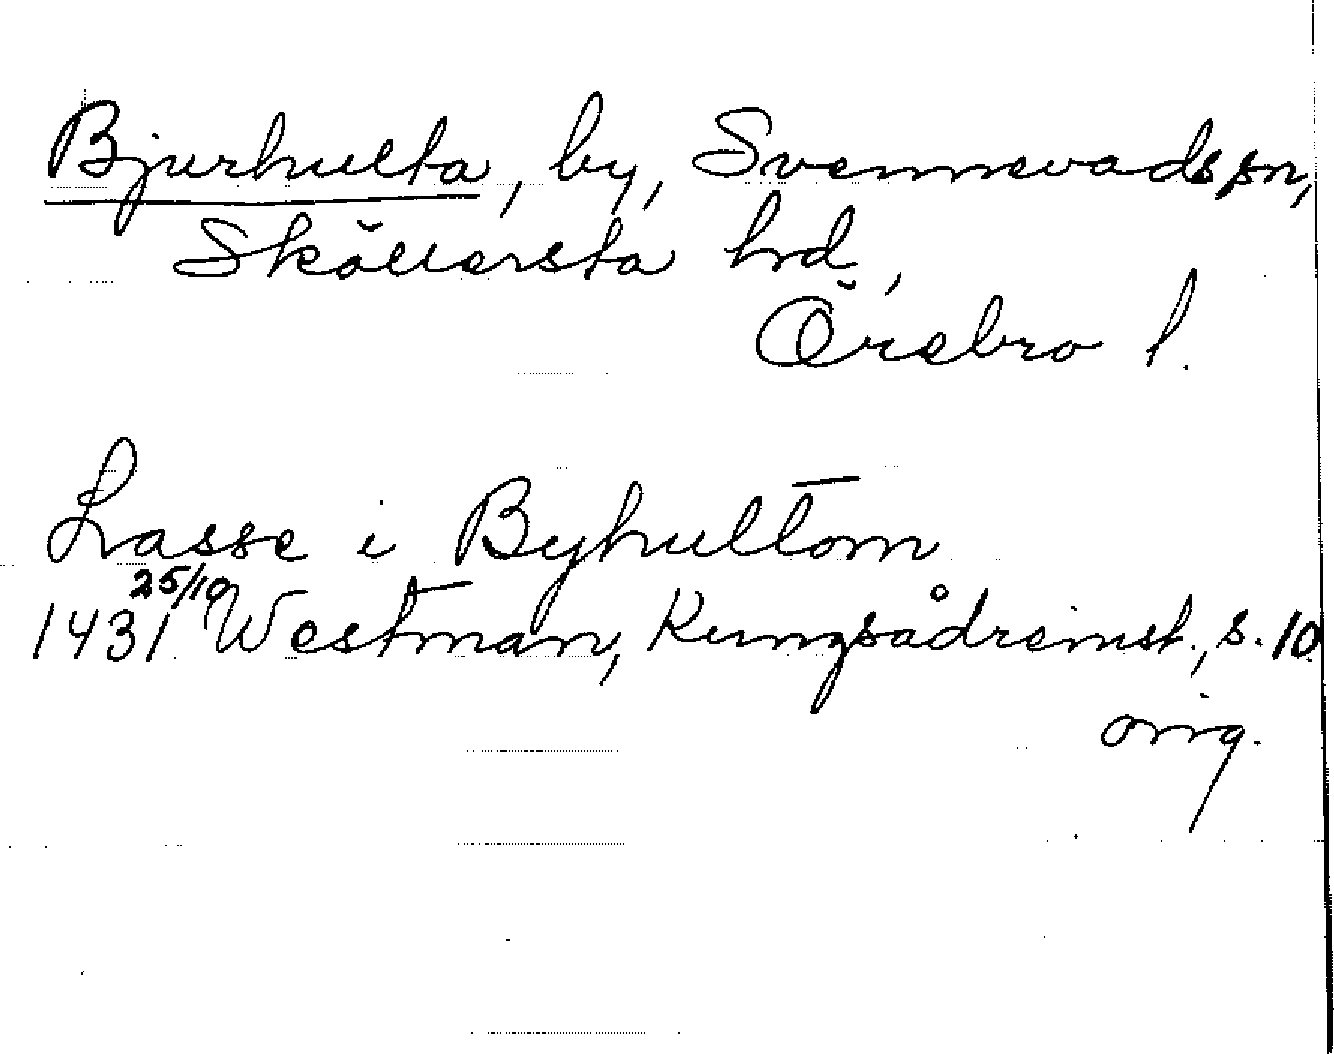 Bjurhulta, by, Svennevads sn,
Sköllersta hrd,
Örebro l.
Lasse i Byhultom
1431 25/10 Westman, Kungsådreinst., s. 10
orig.